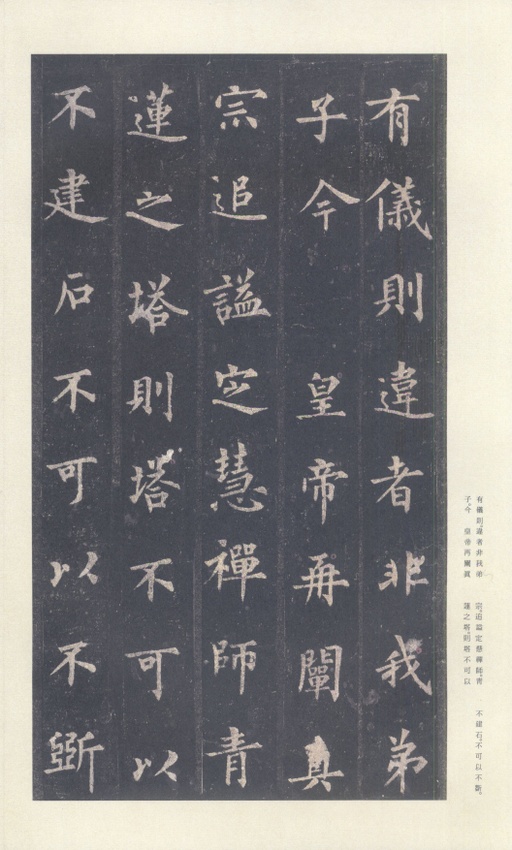 有儀則違者非我弟
子今 皇帝再闡真
宗追謚定慧禪師青
蓮之塔則塔不可以
不建石不可以不斲
有儀則。違者非我弟
子。今 皇帝再闡真
宗。追謚定慧禪師。青
蓮之塔。則塔不可以
不建。石不可以不斲。